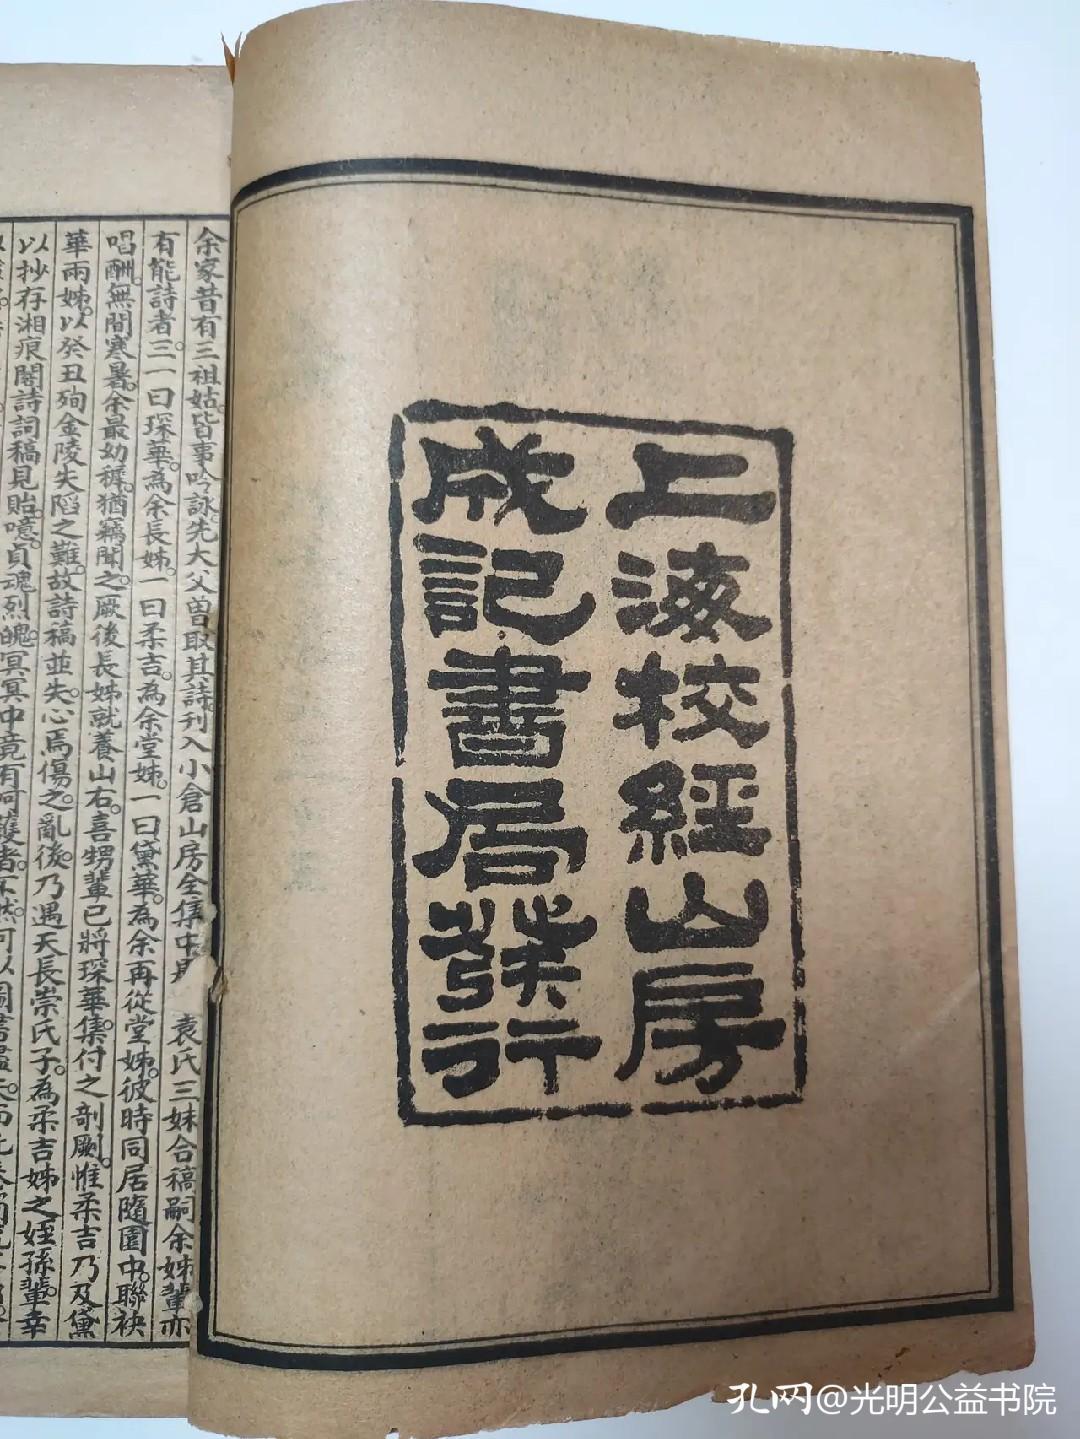 上海校經山房
成記書局發行
余家昔有三祖姑皆事吟詠先大父曾取其詩刊入小倉山房全集中是 袁氏三妹合稿嗣余姊輩亦
有能詩者三一曰琛華為余長姊一曰柔吉為余堂姊一曰黛華為余再從堂姊彼時同居隨園中聯袂
唱酬無間寒暑余最幼穉猶竊聞之厥後長姊就養山右喜甥輩已將琛華集付之剞劂惟柔吉乃及黛
華兩姊以癸丑殉金陵失陷之難故詩稿並失心焉傷之亂後乃遇天長崇氏子為柔吉姊之姪孫輩幸
以抄存湘痕閣詩詞稿見貽噫貞魂烈魄冥冥中竟有呵護者不然何以圖書盡
孔网@光明公益书院